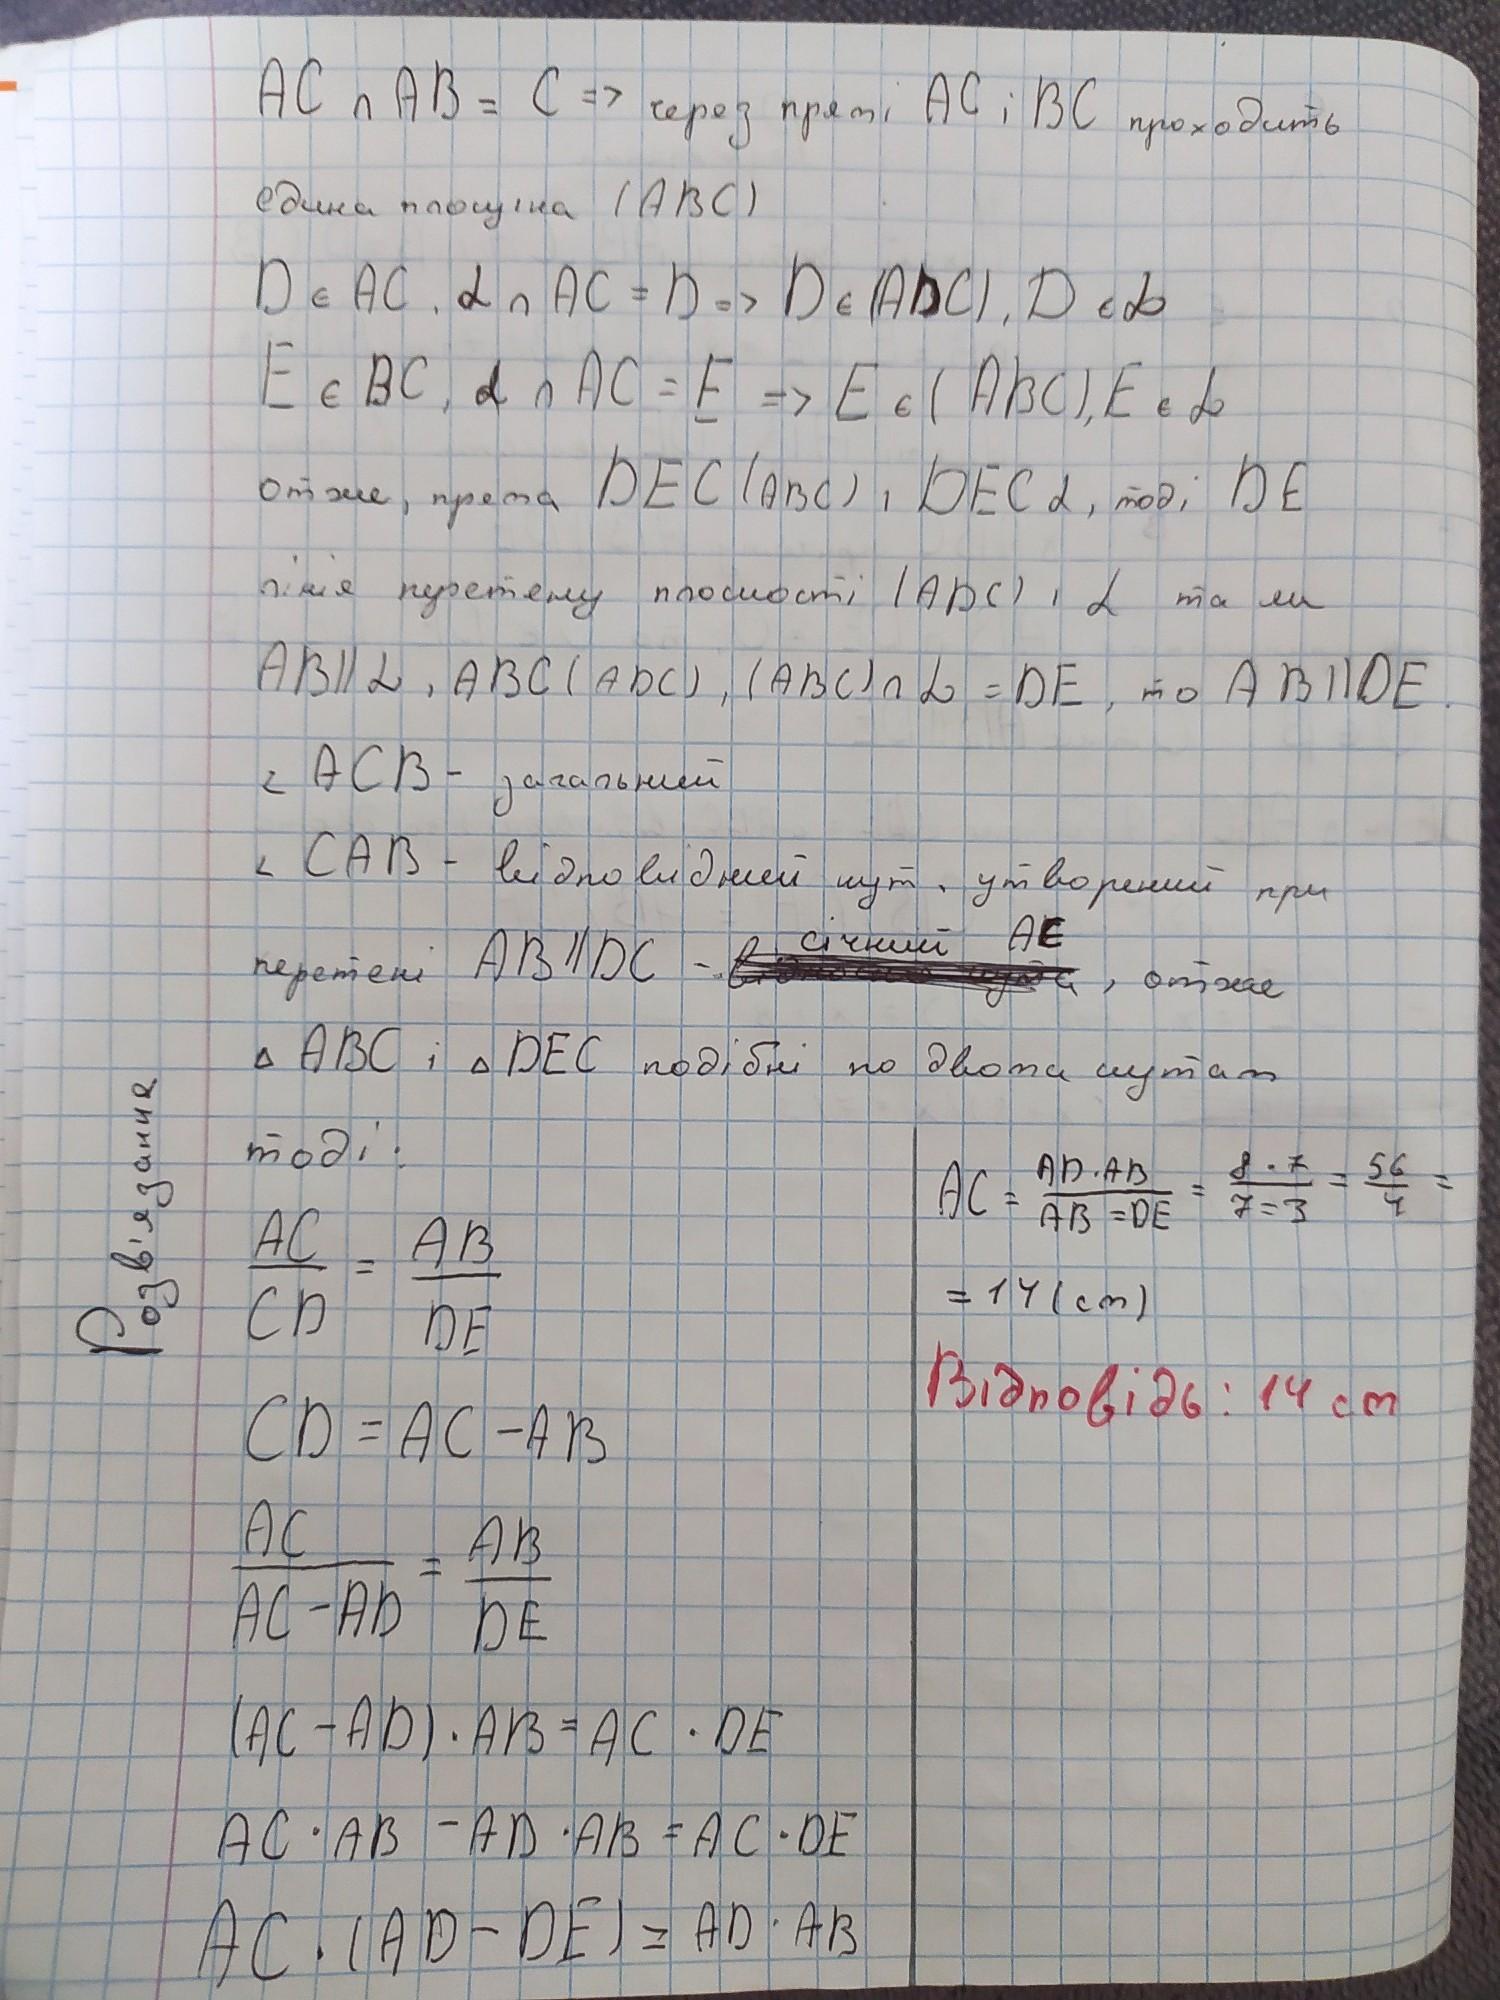 AC ∩ AB = C => через прямі AC і BC проходить
єдина площина (ABC)
D є AC, α ∩ AC = D => D є (ABC), D є α
E є BC, α ∩ AC = E => E є (ABC), E є α
отже, пряма DE⊂(ABC) і DE⊂α, тоді DE
лінія перетену плосності (ABC) і α та
AB || α, AB⊂(ABC), (ABC) ∩ α = DE, то AB || DE.
∠ ACB - загальний
∠ CAB - відповідний кут, утворений при
січний AE
перетені AB || DC - , отже
Δ ABC і Δ DEC подібні по двома кутам
Розв'язання
тоді:
AC/CD = AB/DE
CD = AC - AB
AC/(AC - AD) = AB/DE
(AC - AD) · AB = AC · DE
AC · AB - AD · AB = AC · DE
AC · (AD - DE) = AD · AB
AC = (AD · AB)/(AB = DE) = (8 · 7)/(7 = 3) = 56/4 =
= 14 (см)
Відповідь: 14 см